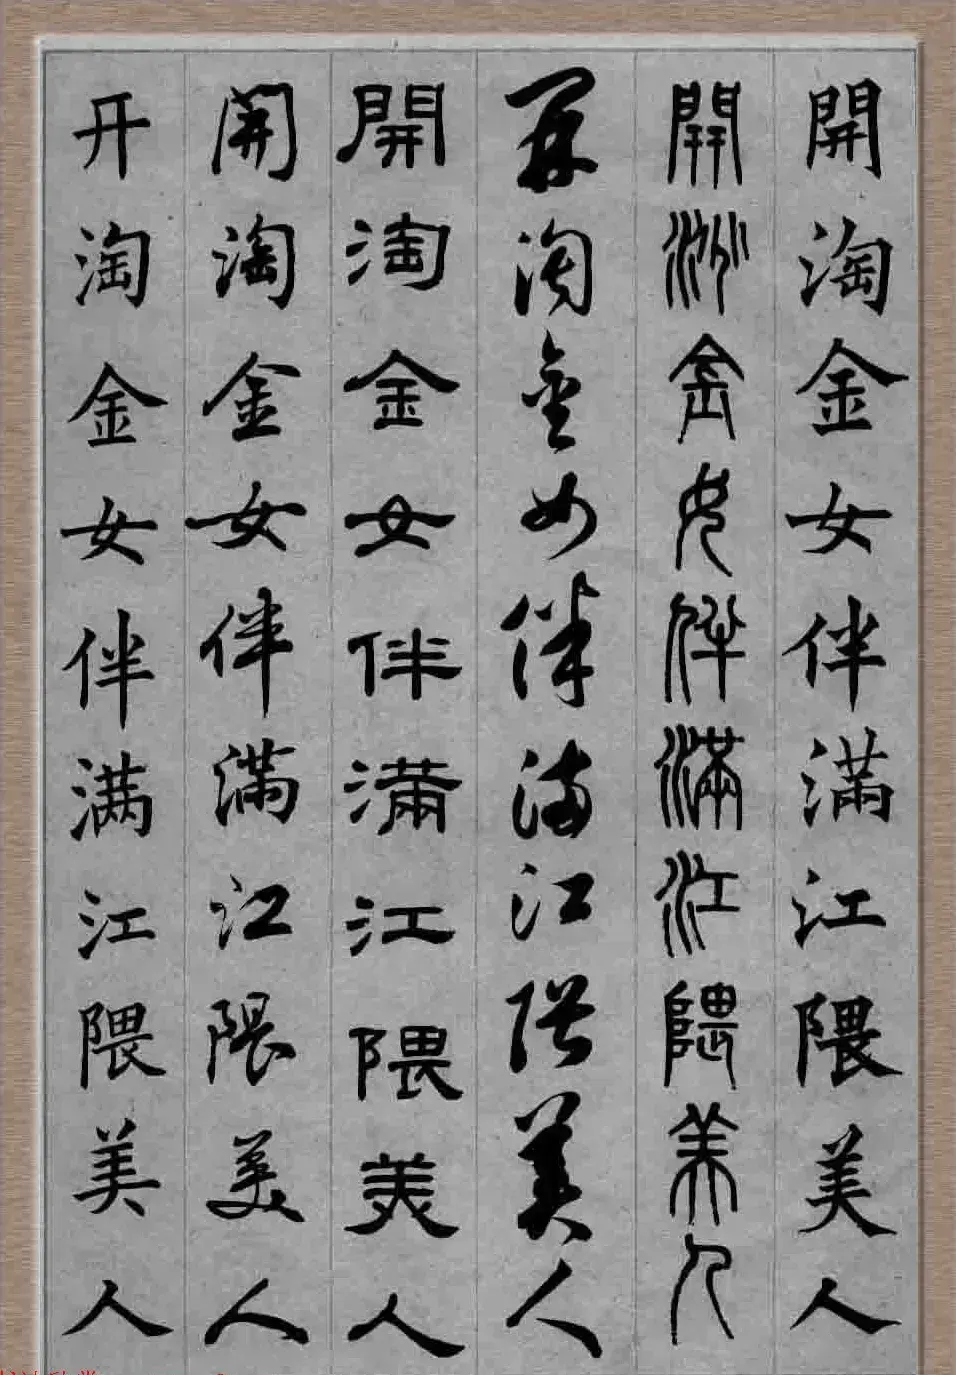 開淘金女伴滿江隈美人
開淘金女伴滿江隈美人
開淘金女伴滿江隈美人
開淘金女伴滿江隈美人
開淘金女伴滿江隈美人
开淘金女伴满江隈美人